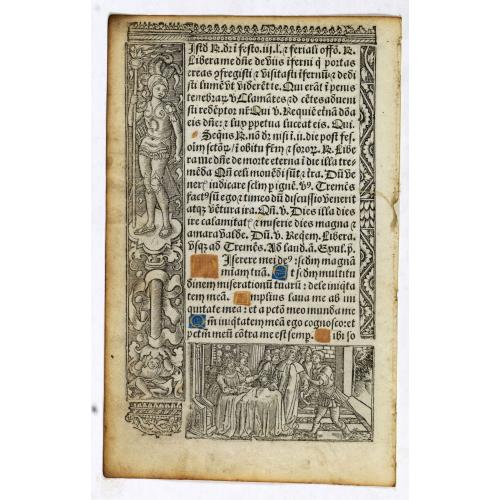 Istd R. dr i festo .iij. l. ⁊ feriali offo. R.
Libera me dñe de viis iferni q̇ portas
ereas ↄfregisti ⁊ visitasti ifernũ ⁊ dedi
sti lumẽ vt viderẽt te. Qui erãt ĩ penis
tenebraꝝ. v Clamãtes ⁊ d cẽtes aduen
isti redẽptor nr̃. Qui v. Requiẽ etnã dõa
eis dñe: ⁊ lux ppetua luceat eis. Qui.
Seq̃ns R. nõ dr nisi i .ii. die post fes.
olm sctõꝝ / i obitu frm̃ ⁊ soroꝝ. R. Libe
ra me dñe de morte eterna ĩ die illa tre-
mẽda Qñ celi mouẽdi sũt ⁊ tra. Dũ ve
neris iudicare sclm̃ p ignẽ. vꝰ. Tremẽs
factꝰ sũ ego ⁊ timeo dũ discussio venerit
atqꝫ vẽtura ira. Qñ. v. Dies illa dies
ire calamitatꝭ ⁊ miserie dies magna ⁊
amara valde. Dũ. v. Reqem̃. Libera.
vsqꝫ ad Tremẽs. Ad laud. ã. Exul. p̃.
Iserere mei deꝰ: scdm̃ magnã
miam tuã. Et scdm̃ multitu
dinem miserationũ tuarũ: dele iniq̃ta
tem meã. Amplius laua me ab ini
quitate mea: et a pctõ meo munda me
Qm̃ iniq̃tatem meã ego cognosco: et
pctm̃ meũ cõtra me est semp. Tibi so